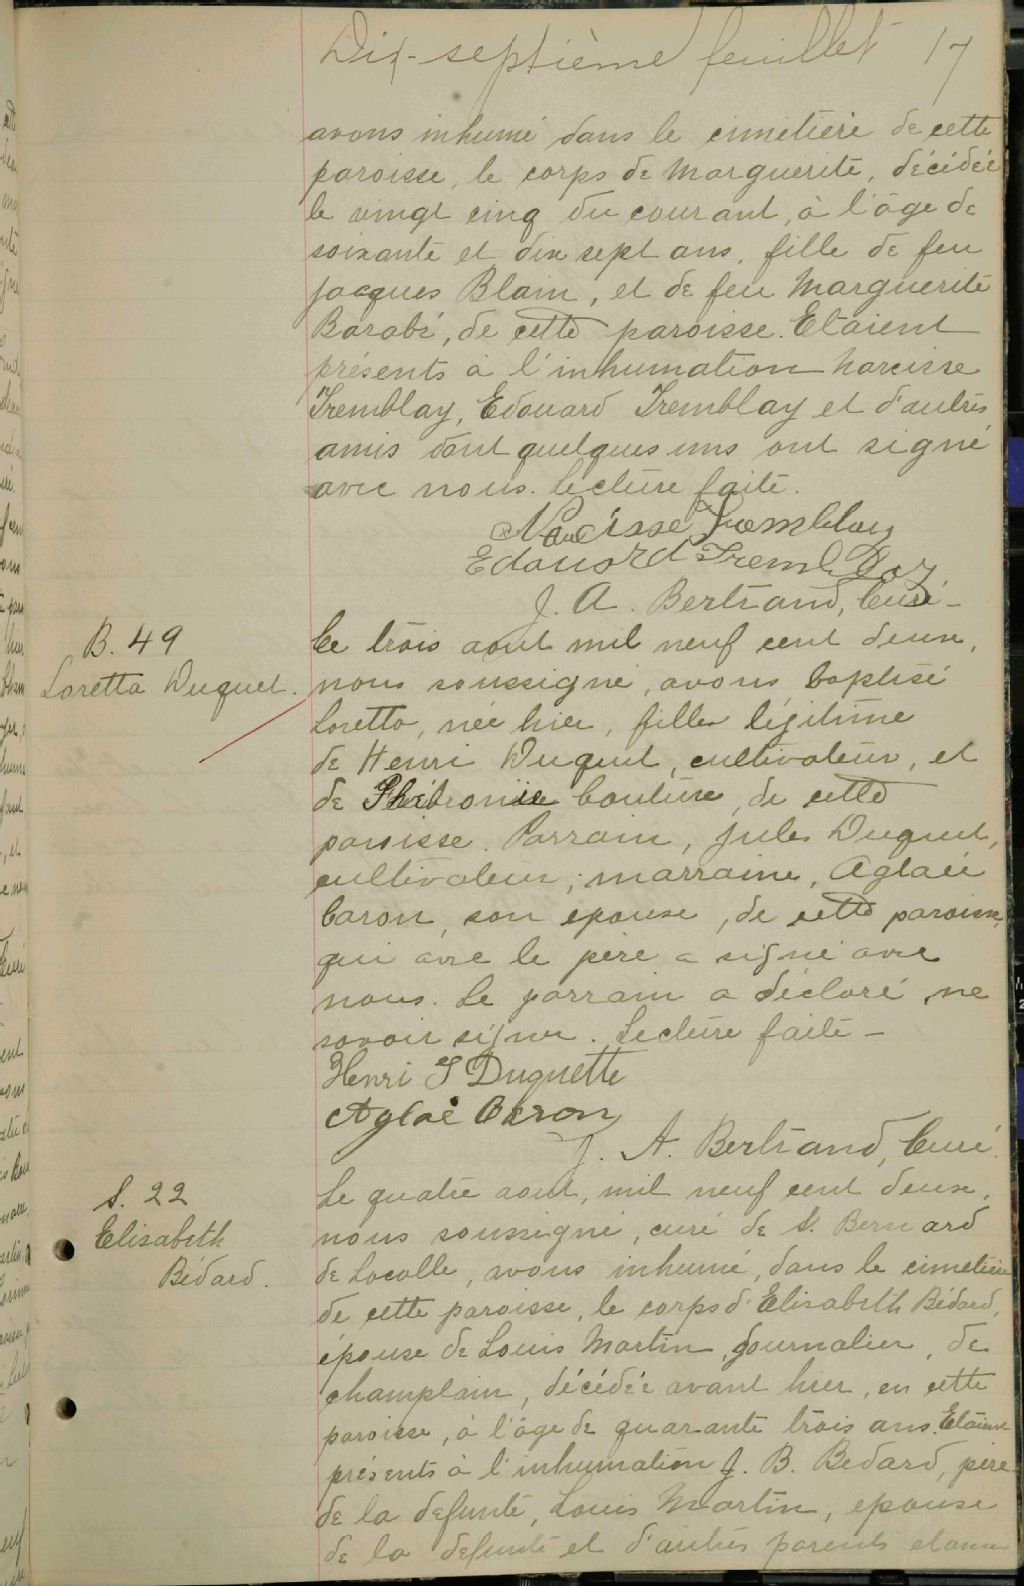 Dix-septième feuillet 17
avons inhumé dans le cimetière de cette
paroisse, le corps de Marguerite, décédée
le vingt cinq du courant, à l'âge de
soixante et dix sept ans, fille de feu
Jacques Blain, et de feu Marguerite
Barabé, de cette paroisse. Etaient
présents à l'inhumation Narcisse
Tremblay, Edouard Tremblay et d'autres
amis dont quelques uns ont signé
avec nous. Lecture faite.
Narcisse Tremblay
Edouard Tremblay
J. A. Bertrand, Curé -
B. 49
Loretta Duquet.
Le trois aout mil neuf cent deux,
nous soussigné, avons baptisé
Loretta, née hier, fille légitime
de Henri Duquet, cultivateur, et
de Couture, de cette
paroisse. Parrain, Jules Duquet,
cultivateur; marraine, Aglaée
Caron, son épouse, de cette paroisse,
qui avec le père a signé avec
nous. Le parrain a déclaré ne
savoir signer. Lecture faite -
Henri Duquette
Aglaé Caron
J. A. Bertrand, Curé.
S. 22
Elisabeth
Bédard.
Le quatre aout, mil neuf cent deux,
nous soussigné, curé de S. Bernard
de Lacolle, avons inhumé, dans le cimetière
de cette paroisse, le corps d'Elisabeth Bédard,
épouse de Louis Martin, journalier, de
Champlain, décédée avant hier, en cette
paroisse, à l'âge de quarante trois ans. Etaient
présents à l'inhumation J. B. Bedard, père
de la defunte, Louis Martin, epouse
de la defunte et d'autres parents et amis